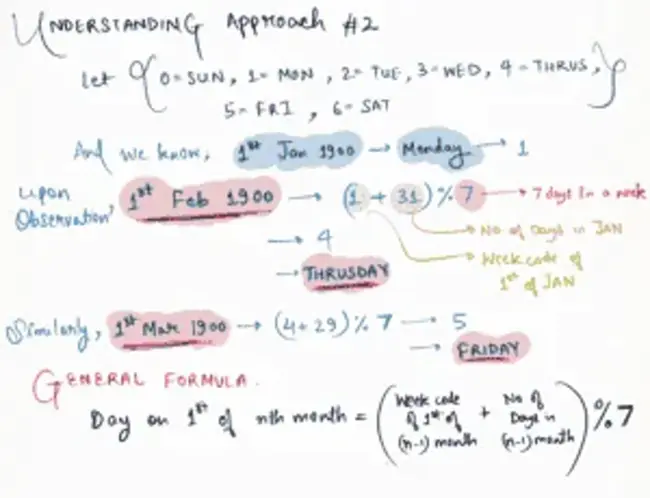 UNDERSTANDING Approach #2
Let { 0=SUN, 1=MON, 2=TUE, 3=WED, 4=THRUS,
5=FRI, 6=SAT }
And we know, 1st Jan 1900 → Monday → 1
Upon Observation, 1st Feb 1900 → (1 + 31) % 7 → 7 days in a week
→ 4
→ No of Days in JAN
→ Week code of 1st of JAN
→ THRUSDAY
Similarly, 1st Mar 1900 → (4+29) % 7 → 5
→ FRIDAY
GENERAL FORMULA.
Day on 1st of nth month = (Week code of 1st of (n-1) month + No of Days in (n-1) month) % 7